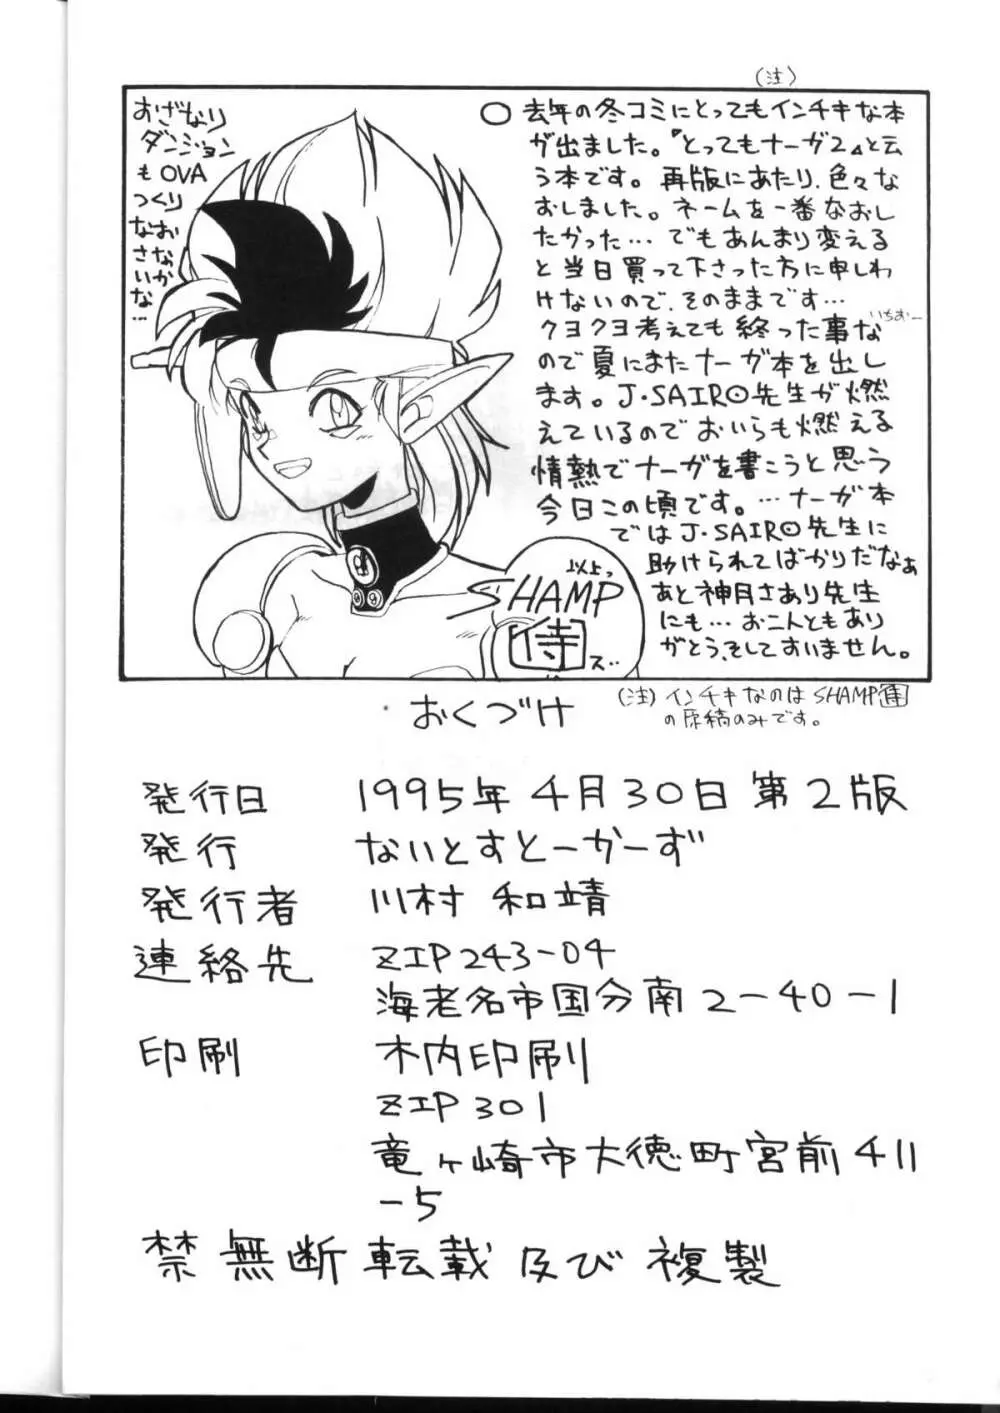 (注)
○ 去年の冬コミにとってもインチキな本
が出ました。『とってもナーガ2』と云
う本です。再版にあたり、色々な
おしました。ネームを一番なおし
たかった…でもあんまり変える
と当日買って下さった方に申しわ
けないので、そのままです…
いちおー
クヨクヨ考えても終った事な
ので夏にまたナーガ本を出し
ます。J・SAIRO先生が燃
えているのでおいらも燃える
情熱でナーガを書こうと思う
今日この頃です。…ナーガ本
ではJ・SAIRO先生に
助けられてばかりだなぁ
あと神月さあり先生
にも…お二人ともあり
がとう、そしてすいません。
おざなり
ダンジョン
もOVA
つくり
なおさ
なかいな…
以上っ
SHAMP
侍
ズ
(注)インチキなのはSHAMP侍
の原稿のみです。
おくづけ
発行日 1995年4月30日 第2版
発行 ないとすとーかーず
発行者 川村 和靖
連絡先 ZIP243-04
海老名市国分南2-40-1
印刷 木内印刷
ZIP301
竜ヶ崎市大徳町宮前411
-5
禁無断転載及び複製